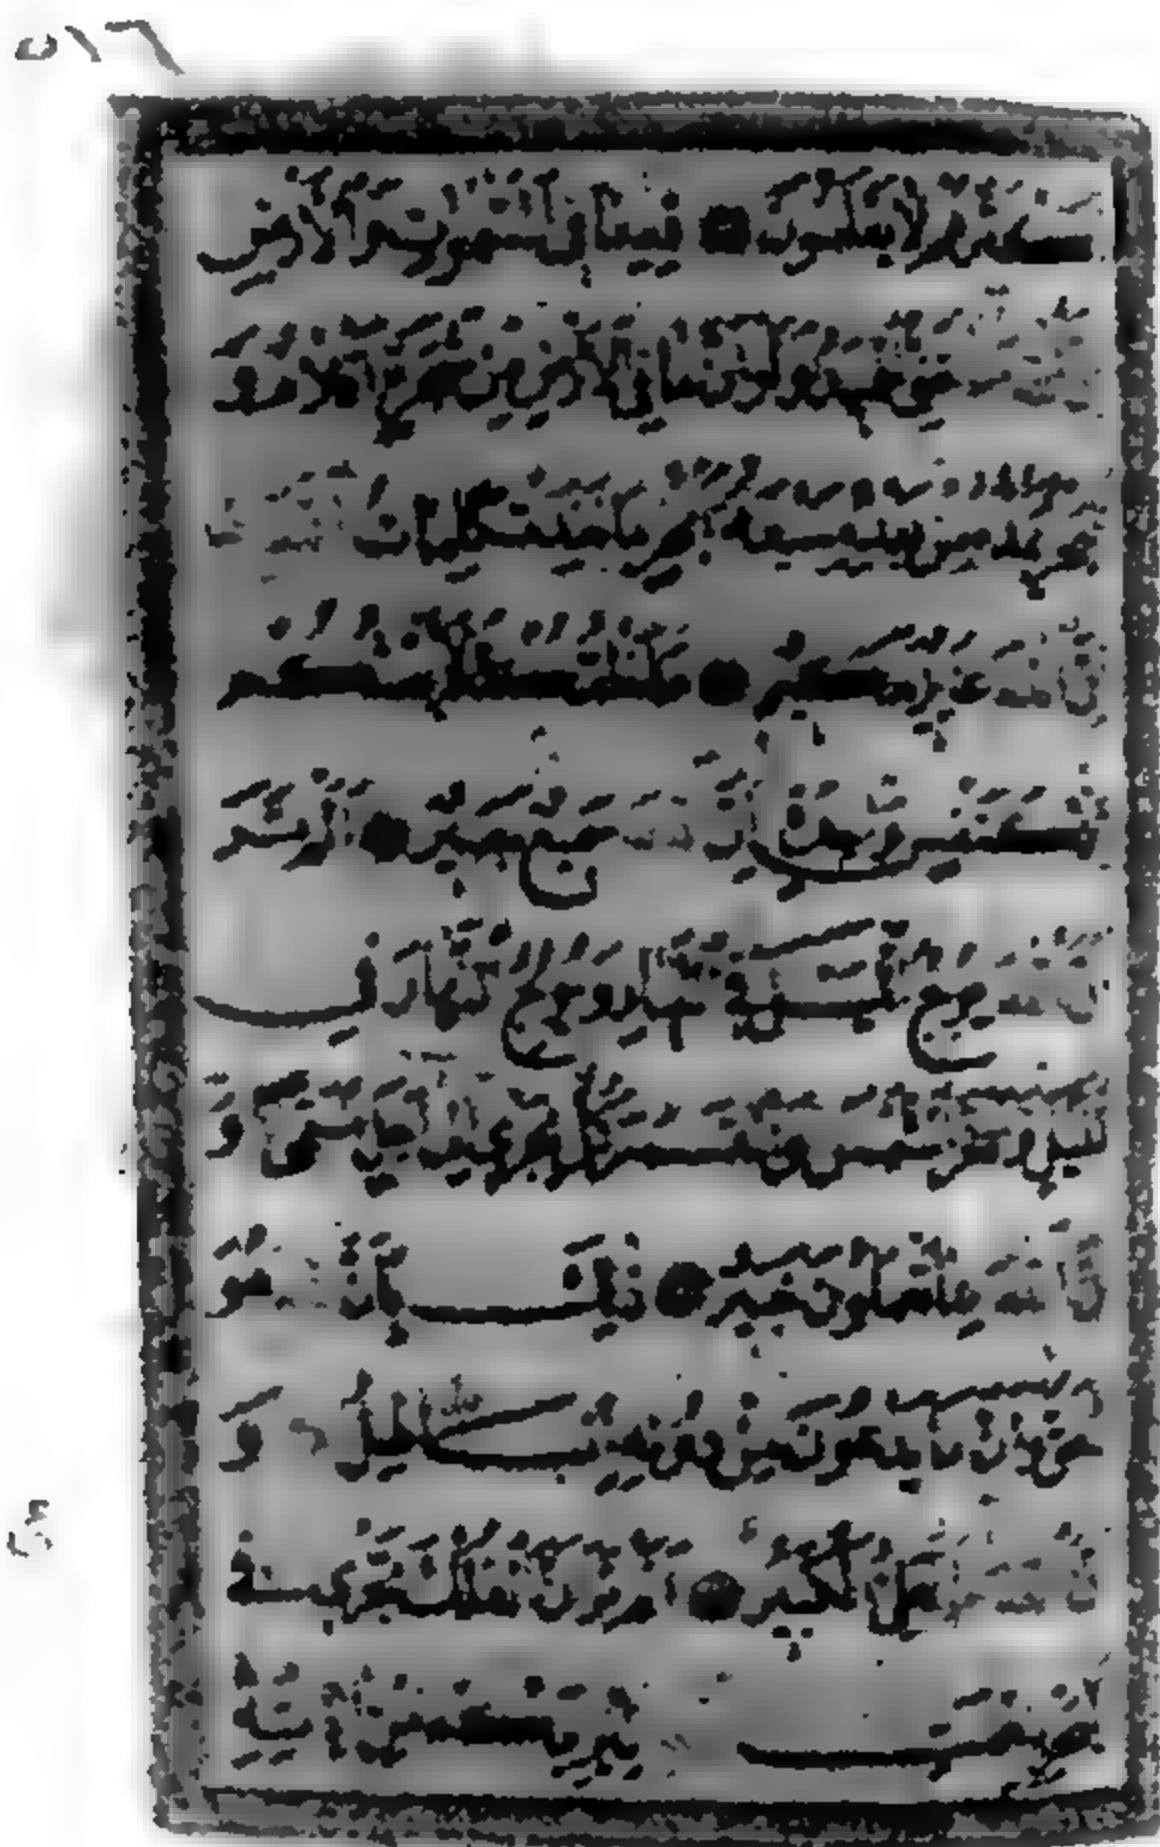 ٥١٦
اكثرهم لا يعلمون لله ما في السموات والارض
ان الله هو الغني الحميد ولو ان ما في الارض من شجرة اقلام و
البحر يمده من بعده سبعة ابحر ما نفدت كلمات الله
ان الله عزيز حكيم ما خلقكم ولا بعثكم
الا كنفس واحدة ان الله سميع بصير الم تر
ان الله يولج الليل في النهار ويولج النهار في
الليل وسخر الشمس والقمر كل يجري الى اجل مسمى و
ان الله بما تعملون خبير ذلك بان الله هو
الحق وان ما يدعون من دونه الباطل و
ان الله هو العلي الكبير الم تر ان الفلك تجري في
البحر بنعمت الله ليريكم من اياته